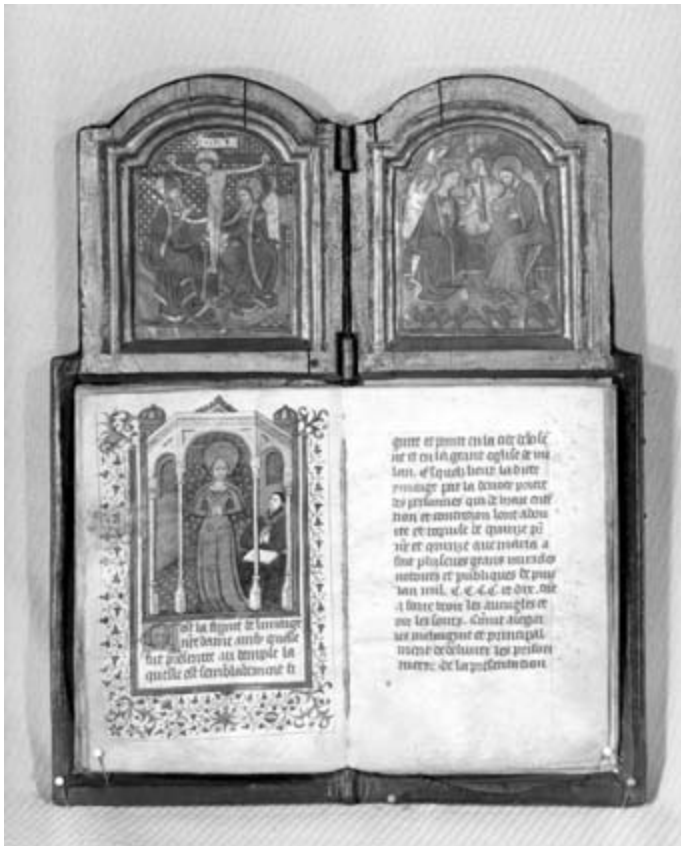 est la figure de limaige
nre dame ainsy quelle
fut presentee au temple la
quelle est semblablement fi
guree et pointe en la cite de
ne et en la grant eglise de mi
lan. esquelx lieux la dicte
ymaige par la devote priere
des personnes qui de vraie
tion et contrition lont adou
ree et requise de quinze
et quinze aue maria a
fait pluseurs grans miracles
notoires et publiques de puis
lan mil. CCCC et dix.
a faire veoir les aveugles et
oir les sours. alegier
les et principal
ment de delivrer les prison
de la presentation